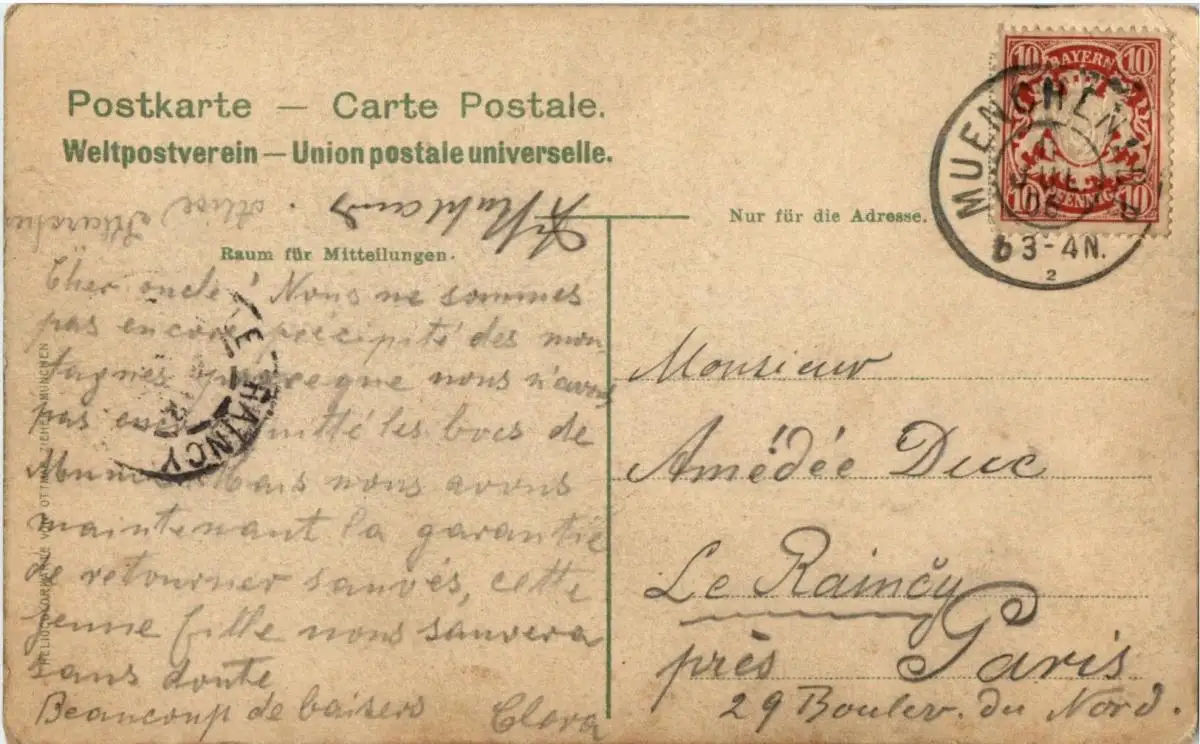 Postkarte — Carte Postale.
Weltpostverein — Union postale universelle.
Nur für die Adresse.
Raum für Mitteilungen.
Cher oncle! Nous ne sommes
pas encore précipité des mon-
tagnes nous n'avons
pas quitté les bocs de
Mais nous avons
maintenant la garantie
de retourner sauvés, cette
jeune fille nous sauvera
sans doute
Beaucoup de baisers Clara
BAYERN
10 10
10 PFENNIG 10
MUENCHEN
3-4N.
2
LE RAINCY
Monsieur
Amédée Duc
Le Raincy
près Paris
29 Boulev. du Nord.